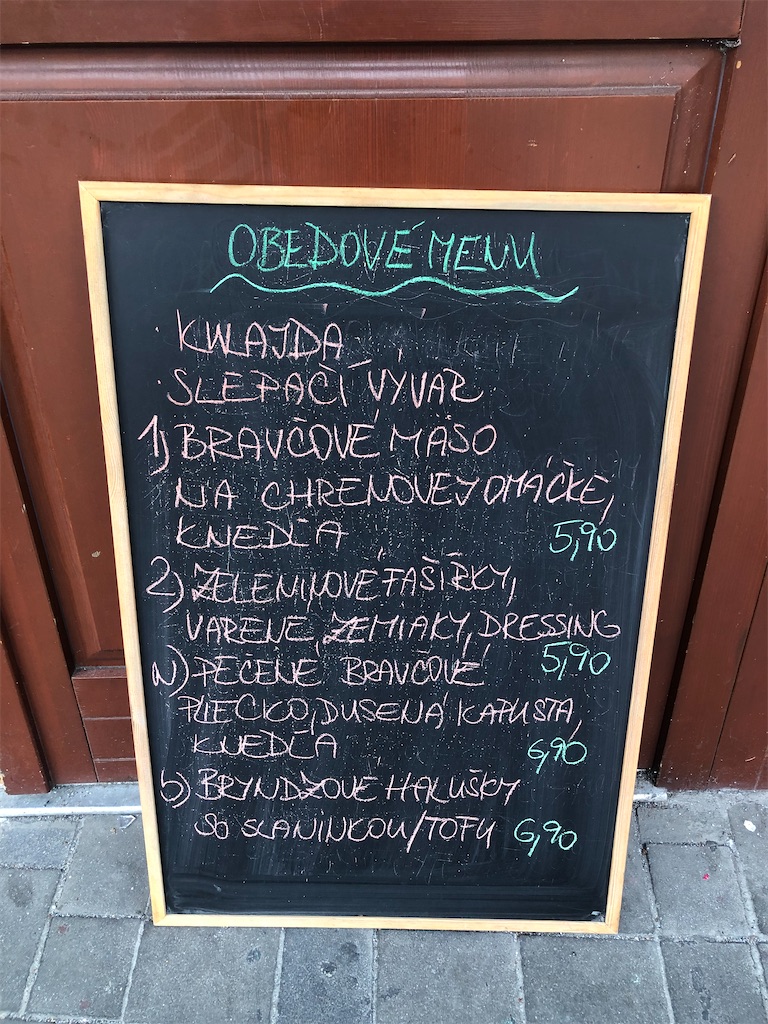 OBEDOVÉ MENU
· KWLAJDA
· SLEPAČÍ VÝVAR
1) BRAVČOVÉ MÄSO
NA CHRENOVEJ OMÁČKE,
KNEDĽA 5,90
2) ZELENINOVÉ FAŠÍRKY,
VARENÉ ZEMIAKY, DRESSING
5,90
N) PEČENÉ BRAVČOVÉ
PLIECKO, DUSENÁ KAPUSTA,
KNEDĽA 6,90
5) BRYNDZOVÉ HALUŠKY
SO SLANINKOU/TOFU 6,90